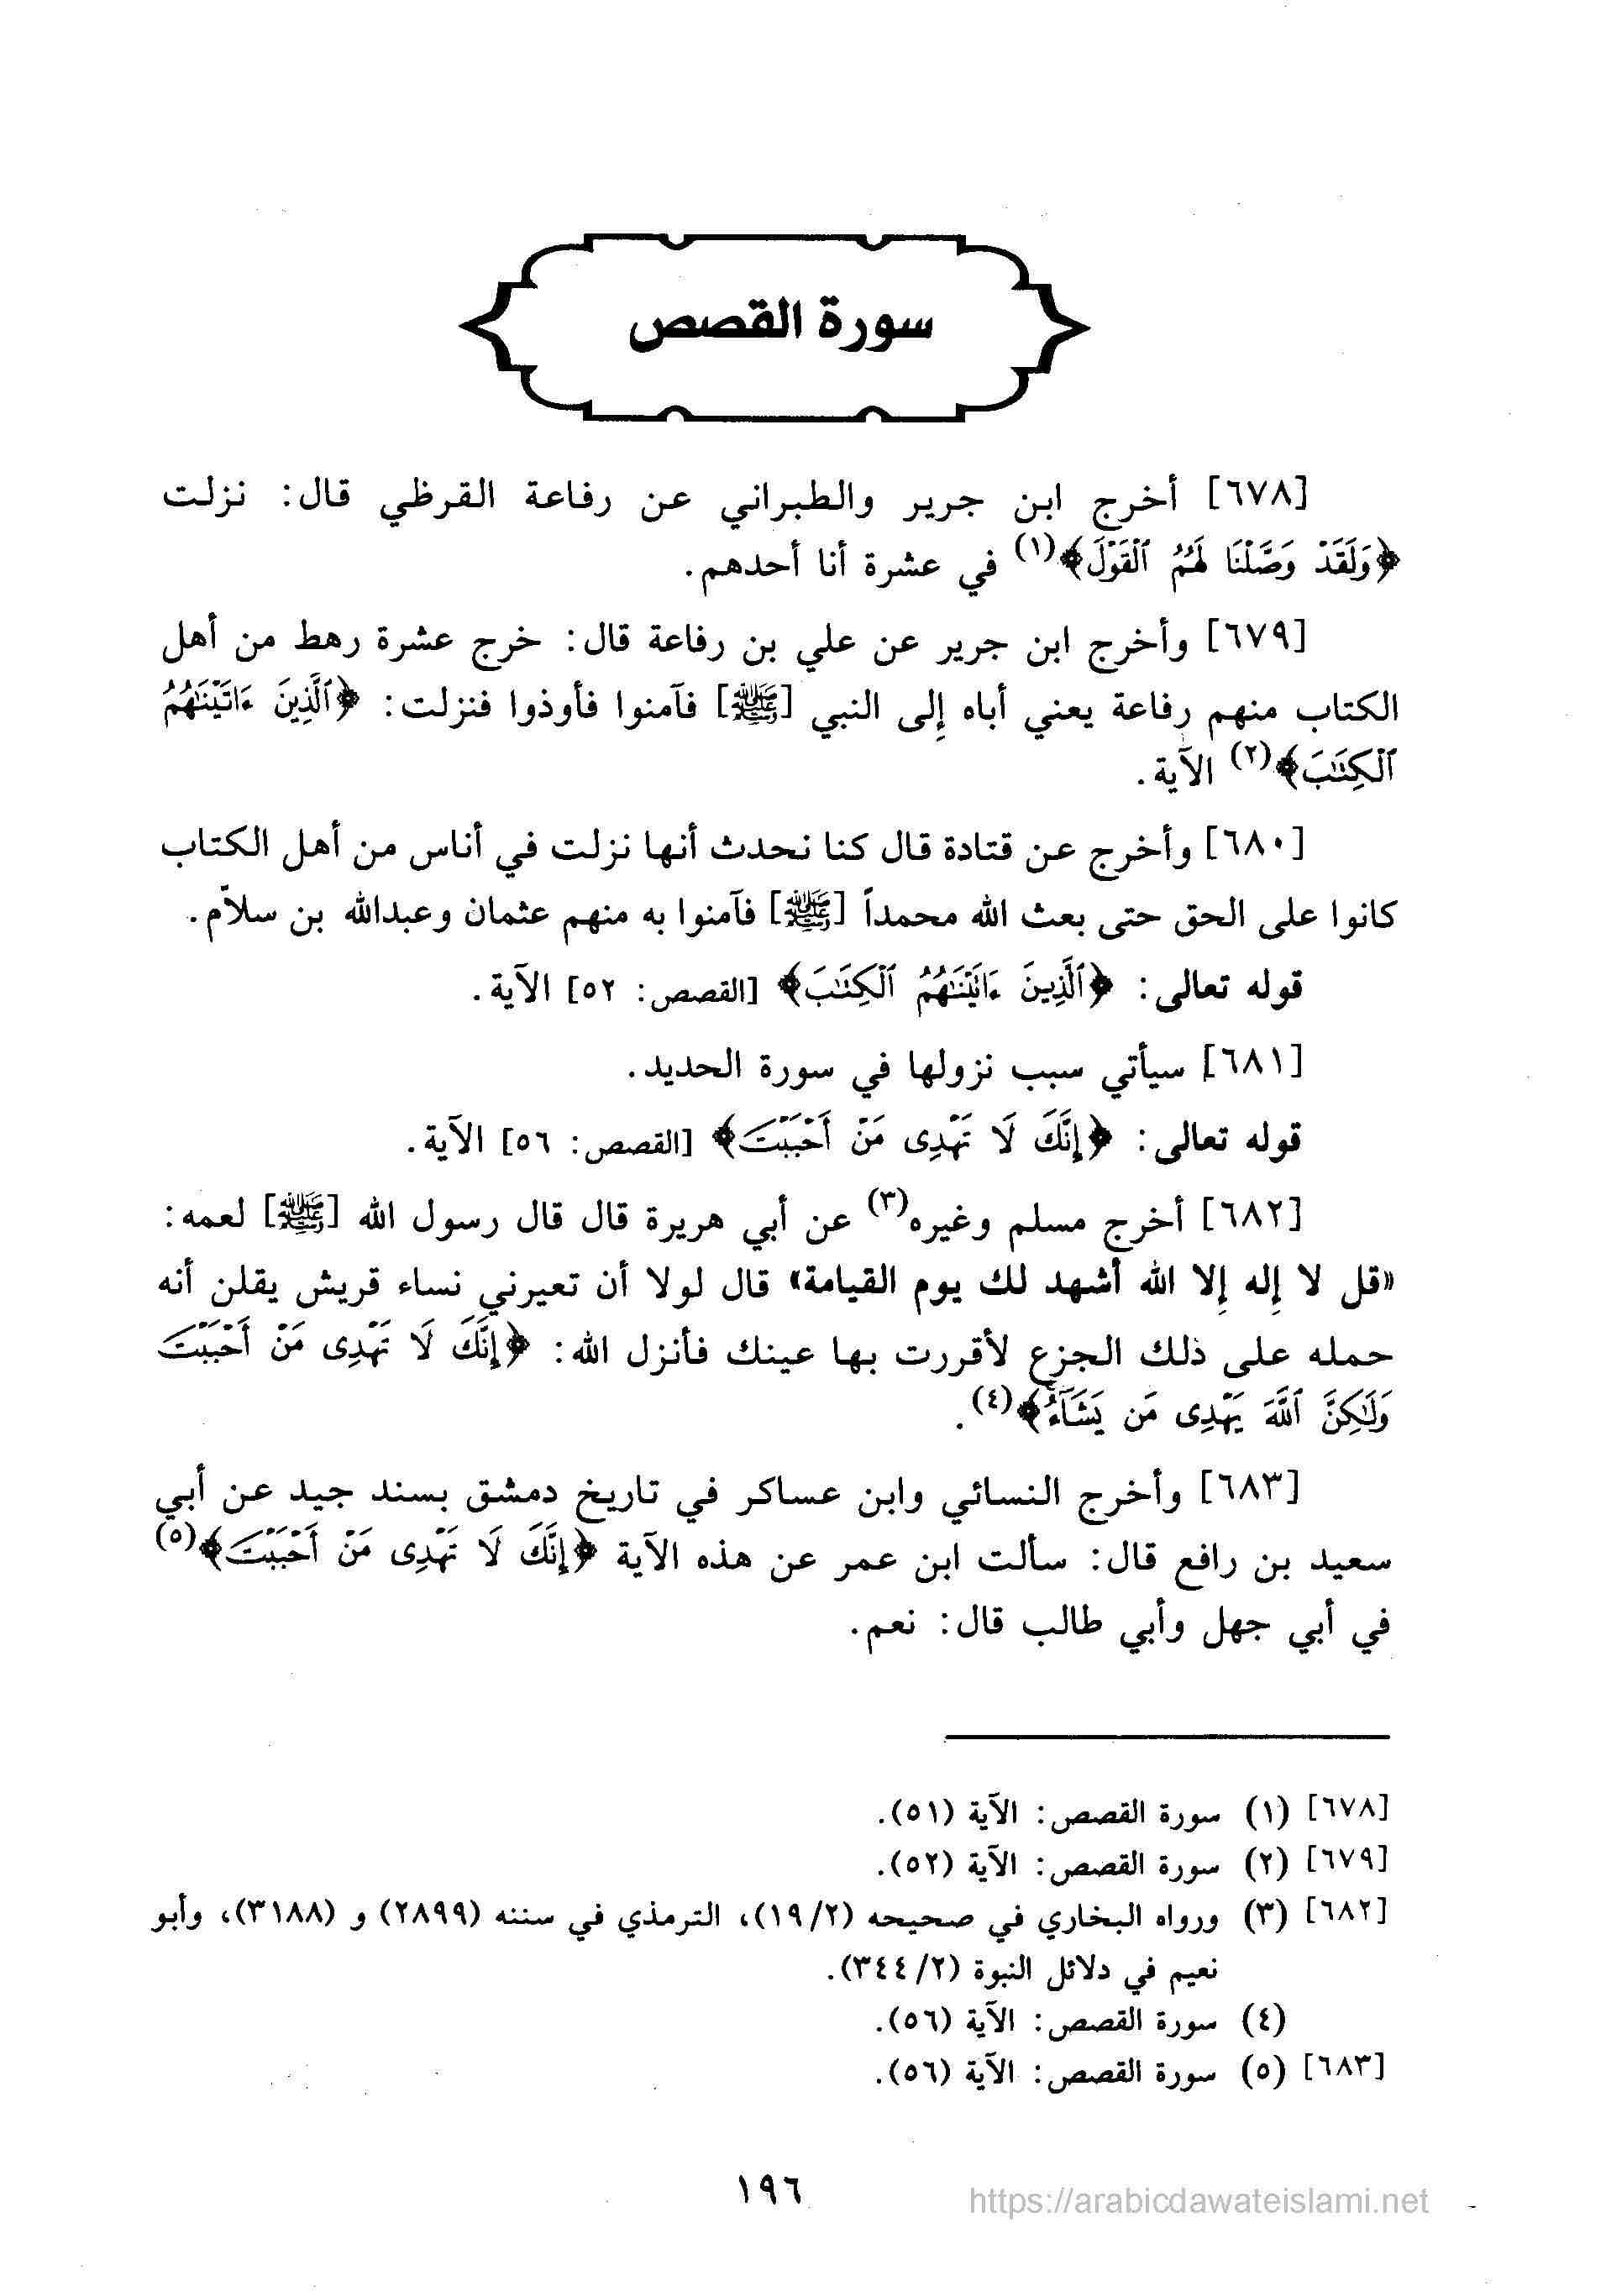 سورة القصص
[٦٧٨] أخرج ابن جرير والطبراني عن رفاعة القرظي قال: نزلت
﴿وَلَقَدْ وَصَّلْنَا لَهُمُ ٱلْقَوْلَ﴾(١) في عشرة أنا أحدهم.
[٦٧٩] وأخرج ابن جرير عن علي بن رفاعة قال: خرج عشرة رهط من أهل
الكتاب منهم رفاعة يعني أباه إلى النبي [ﷺ] فآمنوا فأوذوا فنزلت: ﴿ٱلَّذِينَ ءَاتَيْنَٰهُمُ
ٱلْكِتَٰبَ﴾(٢) الآية.
[٦٨٠] وأخرج عن قتادة قال كنا نحدث أنها نزلت في أناس من أهل الكتاب
كانوا على الحق حتى بعث الله محمداً [ﷺ] فآمنوا به منهم عثمان وعبدالله بن سلاّم.
قوله تعالى: ﴿ٱلَّذِينَ ءَاتَيْنَٰهُمُ ٱلْكِتَٰبَ﴾ [القصص: ٥٢] الآية.
[٦٨١] سيأتي سبب نزولها في سورة الحديد.
قوله تعالى: ﴿إِنَّكَ لَا تَهْدِى مَنْ أَحْبَبْتَ﴾ [القصص: ٥٦] الآية.
[٦٨٢] أخرج مسلم وغيره(٣) عن أبي هريرة قال قال رسول الله [ﷺ] لعمه:
«قل لا إله إلا الله أشهد لك يوم القيامة» قال لولا أن تعيرني نساء قريش يقلن أنه
حمله على ذلك الجزع لأقررت بها عينك فأنزل الله: ﴿إِنَّكَ لَا تَهْدِى مَنْ أَحْبَبْتَ
وَلَٰكِنَّ ٱللَّهَ يَهْدِى مَن يَشَآءُ﴾(٤).
[٦٨٣] وأخرج النسائي وابن عساكر في تاريخ دمشق بسند جيد عن أبي
سعيد بن رافع قال: سألت ابن عمر عن هذه الآية ﴿إِنَّكَ لَا تَهْدِى مَنْ أَحْبَبْتَ﴾(٥)
في أبي جهل وأبي طالب قال: نعم.
[٦٧٨] (١) سورة القصص: الآية (٥١).
[٦٧٩] (٢) سورة القصص: الآية (٥٢).
[٦٨٢] (٣) ورواه البخاري في صحيحه (١٩/٢)، الترمذي في سننه (٢٨٩٩) و (٣١٨٨)، وأبو
نعيم في دلائل النبوة (٣٤٤/٢).
(٤) سورة القصص: الآية (٥٦).
[٦٨٣] (٥) سورة القصص: الآية (٥٦).
١٩٦
https://arabicdawateislami.net